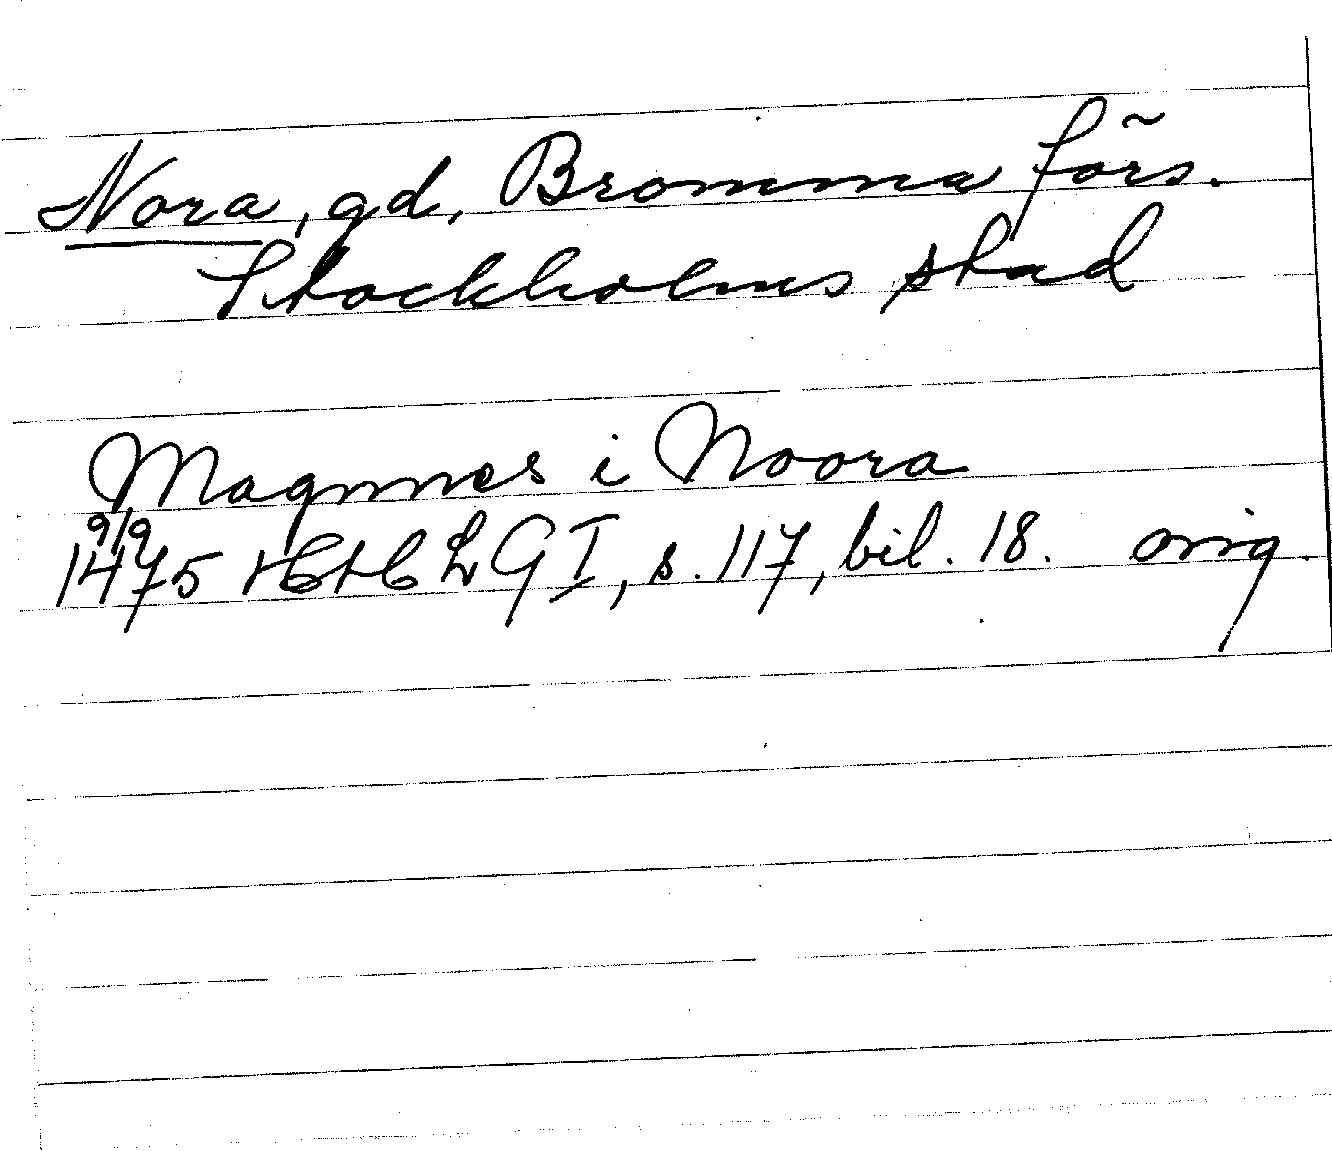 Nora, gd, Bromma förs.
Stockholms stad
Magnnes i Noora
9/9
1475 HH LG I, s. 117, bil. 18. orig.